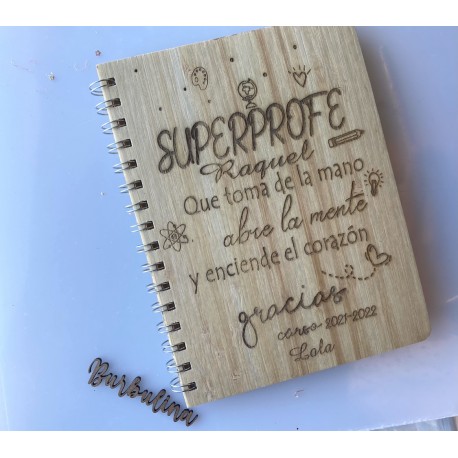 SUPERPROFE
Raquel
Que toma de la mano
abre la mente
y enciende el corazón
gracias
curso 2021-2022
Lola
Burbulina